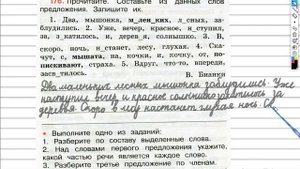 176. Прочитайте. Составьте из данных слов
предложения. Запишите
1. Два, мышонка, м_лен_ких, л_сных, за-
блудились. 2. Уже, вечер, красное, н_ступил,
за, з_катилось, д_ревья, солнышко. 3. В,
скоро, ночь, н_станет, лесу, глухая. 4. Ска-
чут, с, мышата, на, кочки, и, кочку, от, по-
пискивают, страха. 5. Вдруг, что-то, впереди,
засв_тилось.
В. Бианки
Два маленьких лесных мышонка заблудились. Уже
наступил вечер и красное солнышко закатилось за
деревья Скоро в лесу настанет глухая ночь. Ск
Выполните одно из заданий:
1. Разберите по составу выделенные слова.
2. Над словами первого предложения укажите,
какой частью речи является каждое слово.
3. Разберите третье предложение по членам